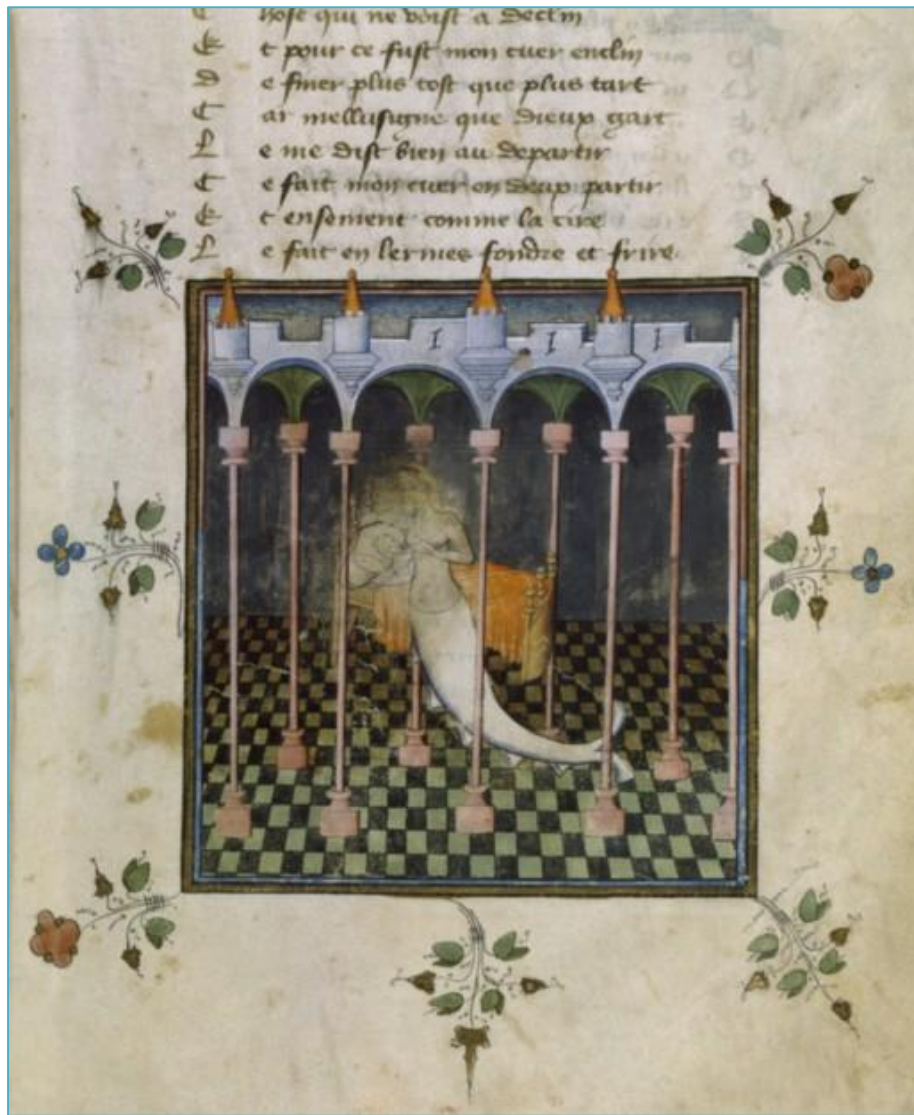 C hose qui ne voist a declin
E t pour ce fust mon cuer enclin
D e finer plus tost que plus tart
C ar mellusigne que dieux gart
L e me dist bien au departir
C e fait mon cuer en deax partir
E t ensement comme la cire
L e fait en lermes fondre et frire